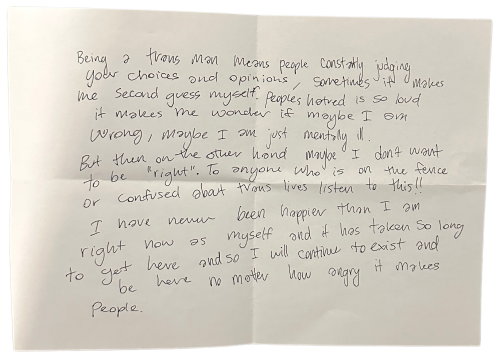 Being a trans man means people constantly judging
your choices and opinions, sometimes it makes
me second guess myself. Peoples hatred is so loud
it makes me wonder if maybe I am
wrong, maybe I am just mentally ill.
But then on the other hand maybe I don't want
to be "right". To anyone who is on the fence
or confused about trans lives listen to this!!
I have never been happier than I am
right now as myself and it has taken so long
to get here and so I will continue to exist and
be here no matter how angry it makes
people.